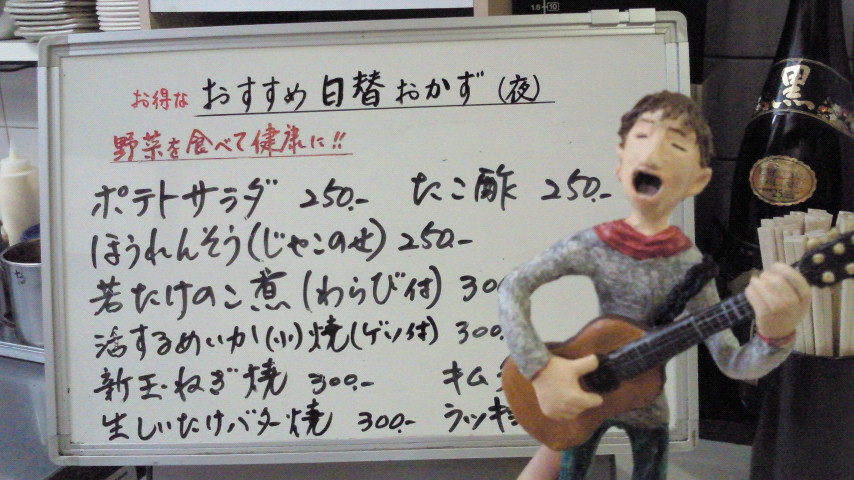 お得な おすすめ日替おかず(夜)
野菜を食べて健康に!!
ポテトサラダ 250.- たこ酢 250.-
ほうれんそう(じゃこのせ) 250-
若たけのこ煮(わらび付) 300
活するめいか(小)焼(ゲソ付) 300.
新玉ねぎ焼 300.- キム
生しいたけバター焼 300.- ラッキ
黒